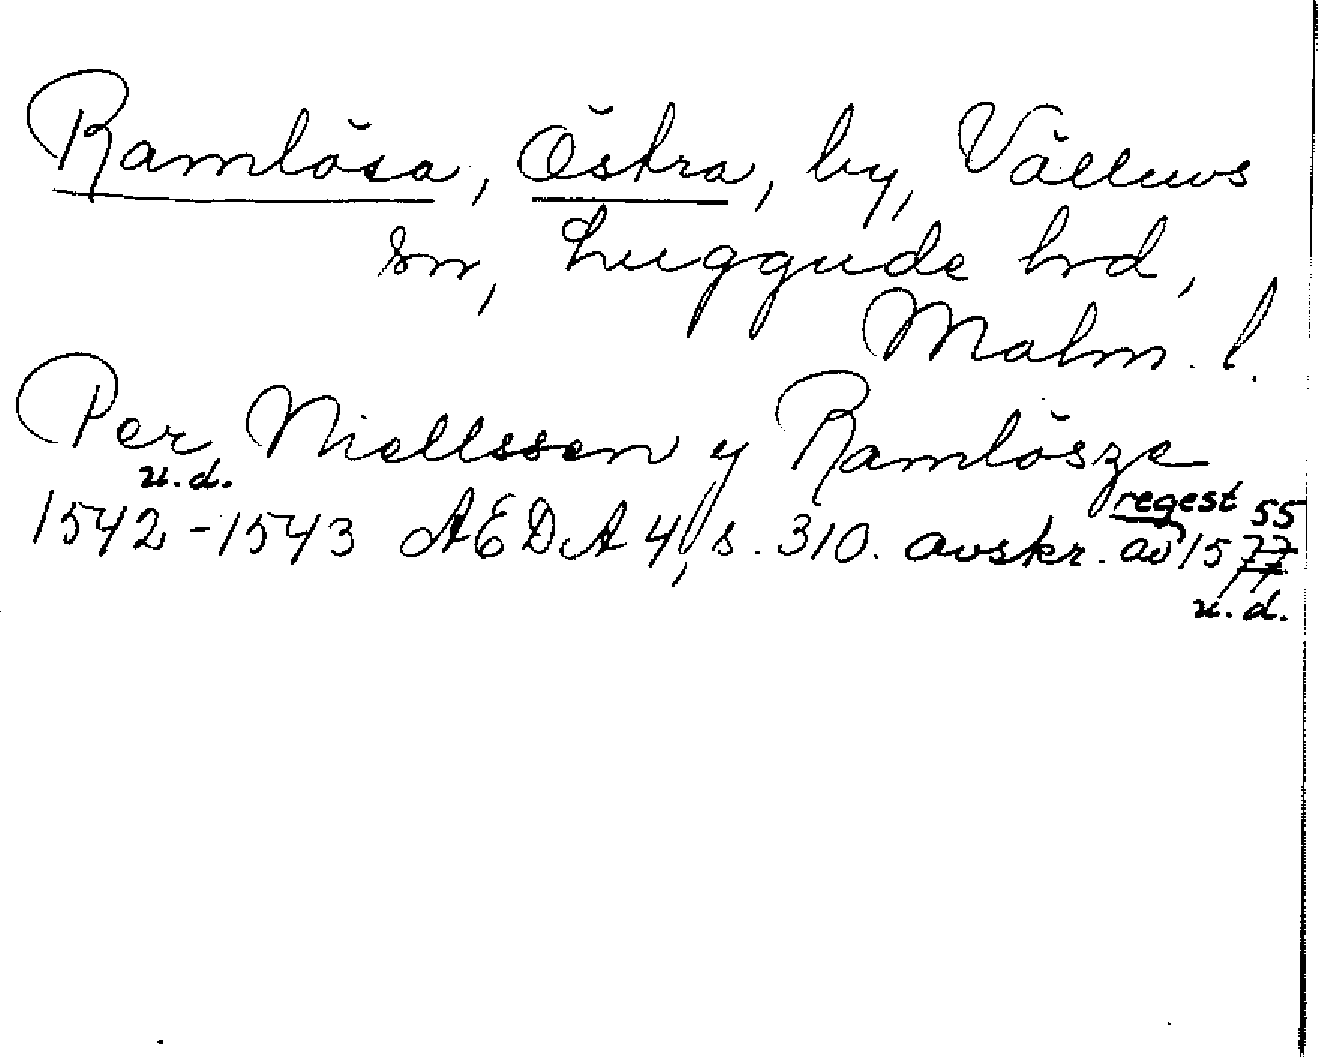 Ramlösa, Östra, by, Välluvs
sn, Luggude hd,
Malm. l.
Per Niellssen y Ramlösze
u.d.
1542-1543 AEDA 4, s. 310. avskr. av 1577
regest 55
u.d.